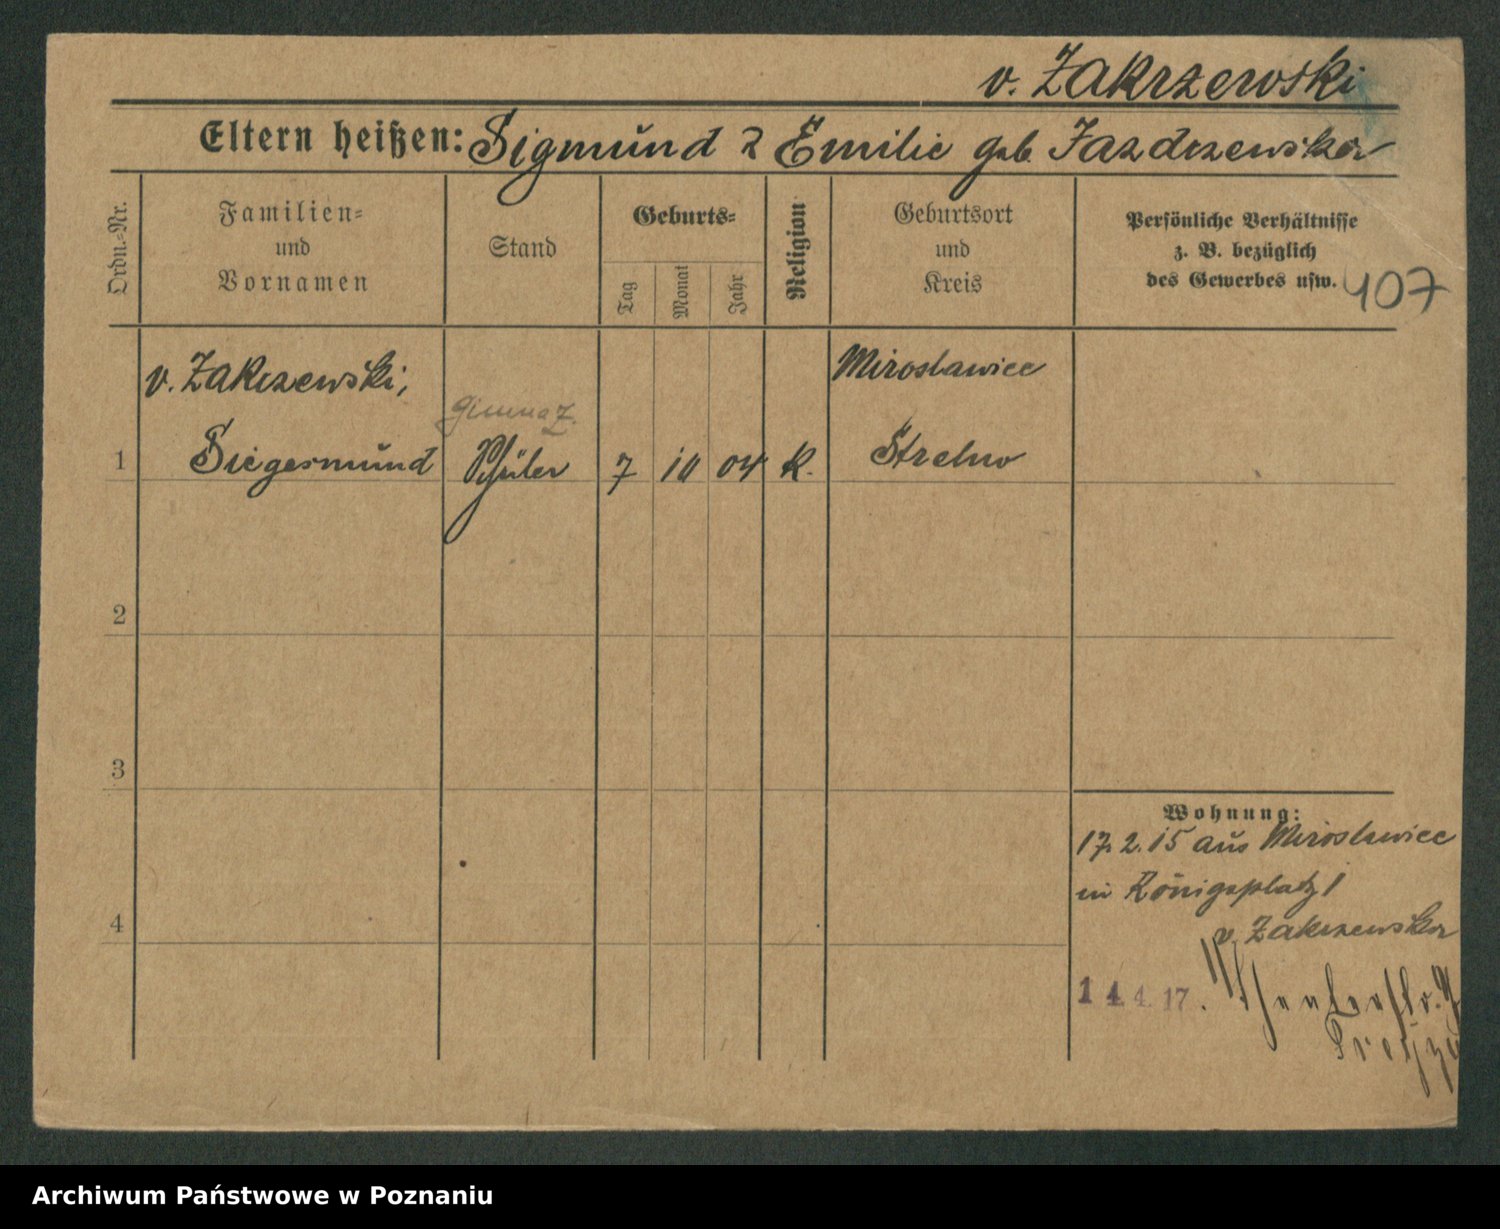 v. Zakrzewski
Eltern heißen: Sigmund & Emilie geb. Jazdrzewska
Ordn.-Nr.
Familien-
und
Vornamen
Stand
Geburts-
Tag
Monat
Jahr
Religion
Geburtsort
und
Kreis
Persönliche Verhältnisse
z. B. bezüglich
des Gewerbes usw.
407
v. Zakrzewski,
Miroslawice
Gimnaz.
1 Siegesmund Schüler 7 10 04 K. Strelno
2
3
4
Wohnung:
17.2.15 aus Miroslawice
in Königsplatz 1
v. Zakrzewska
14.4.17.
Archiwum Państwowe w Poznaniu